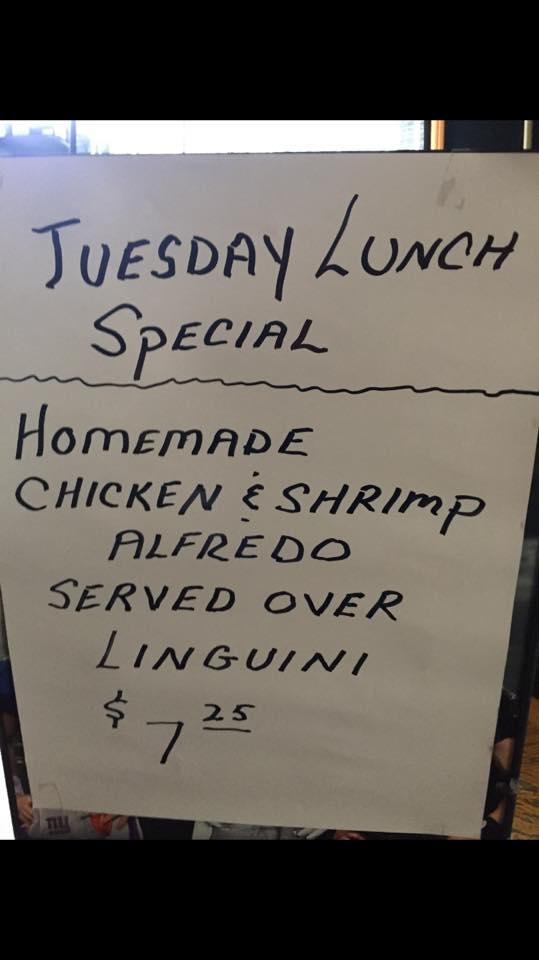 TUESDAY LUNCH
SPECIAL
HOMEMADE
CHICKEN & SHRIMP
ALFREDO
SERVED OVER
LINGUINI
$7 25